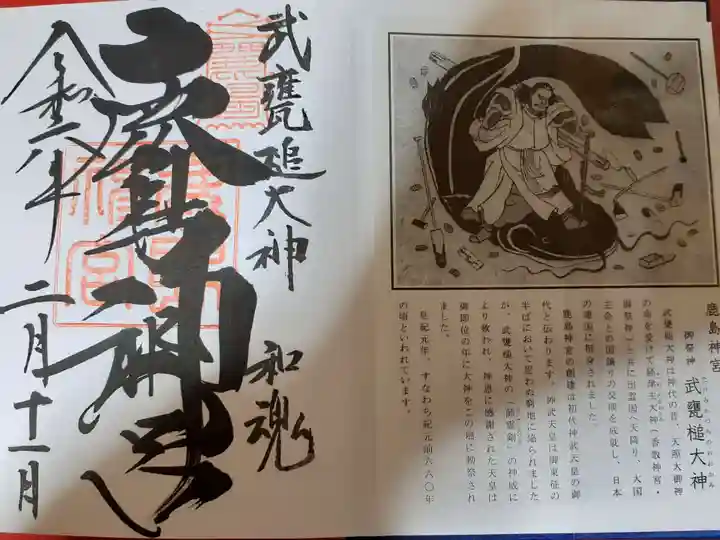 鹿島神宮
御祭神 武甕槌大神
武甕槌大神は神代の昔、天照大御神
の命を受けて経津主大神（香取神宮・
御祭神）と共に出雲国へ天降り、大国
主命との国譲りの交渉を成就し、日本
の建国に挺身されました。
鹿島神宮の創建は初代神武天皇の御
代と伝わります。神武天皇は御東征の
半ばにおいて思わぬ窮地に陥られました
が、武甕槌大神の「韴霊剣」の神威に
より救われ、神恩に感謝された天皇は
御即位の年に大神をこの地に勅祭され
ました。
皇紀元年、すなわち紀元前六六〇年
の頃といわれています。
武甕槌大神 和魂
鹿島神宮
令和六年 二月十一日